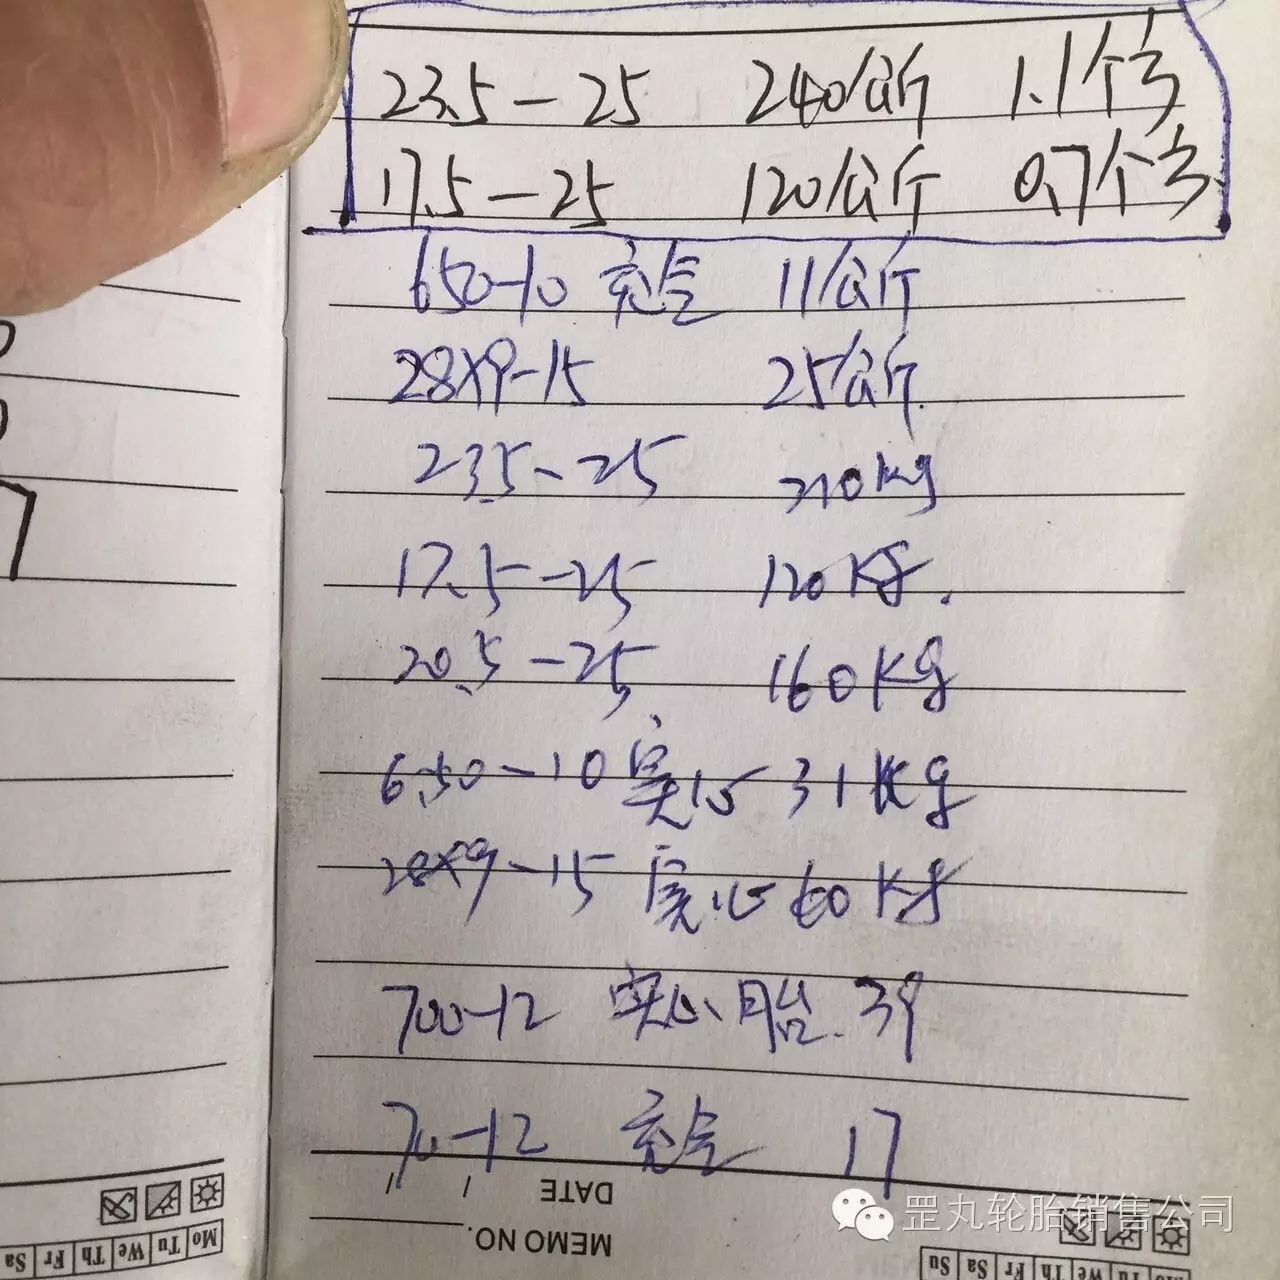 23.5-25 240/公斤 1.1个方
17.5-25 120/公斤 0.7个方
650-10 充气 11/公斤
28x9-15 25/公斤
23.5-25 210kg
17.5-25 120Kg.
20.5-25 160Kg
6.50-10 实心 31Kg
28x9-15 实心 60Kg
700-12 实心胎 39
70-12 充气 17
DATE
MEMO NO.
Mo Tu We Th Fr Sa
Th Fr Sa Su
罡丸轮胎销售公司